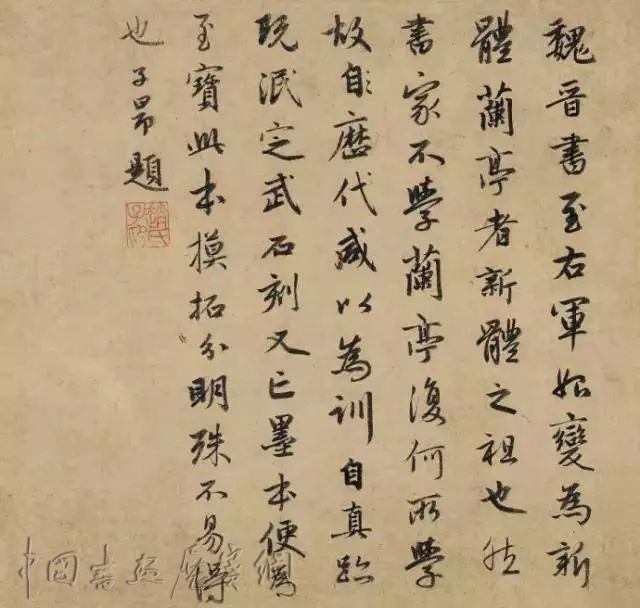 魏晉書至右軍始變為新
體蘭亭者新體之祖也然
書家不學蘭亭復何所學
故自歷代咸以為訓自真跡
既泯定武石刻又亡墨本便為
至寶此本模拓分明殊不易得
也子昂題
趙氏子昂